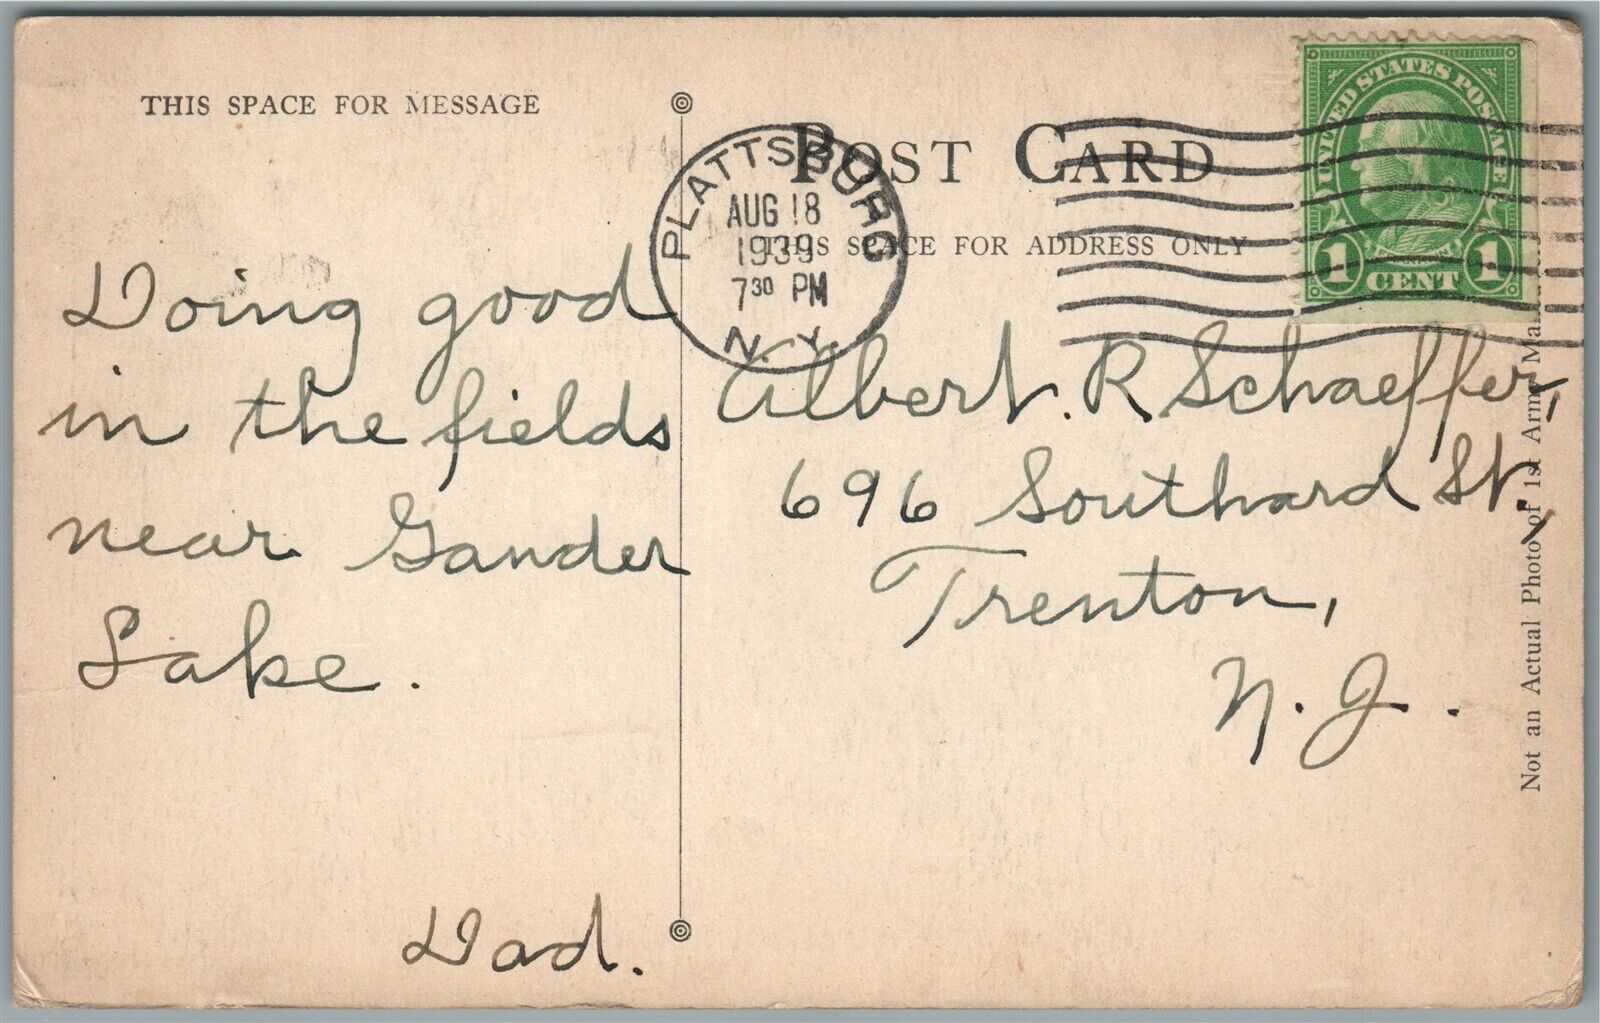 THIS SPACE FOR MESSAGE
Doing good
in the fields
near Gander
Lake.
Dad.
POST CARD
THIS SPACE FOR ADDRESS ONLY
PLATTSBURG
AUG 18
1939
7³⁰ PM
N.Y.
UNITED STATES POSTAGE
FRANKLIN
1 CENT 1
Albert. R Schaeffer,
696 Southard St.,
Trenton,
N. J.
Not an Actual Photo of 1st Army